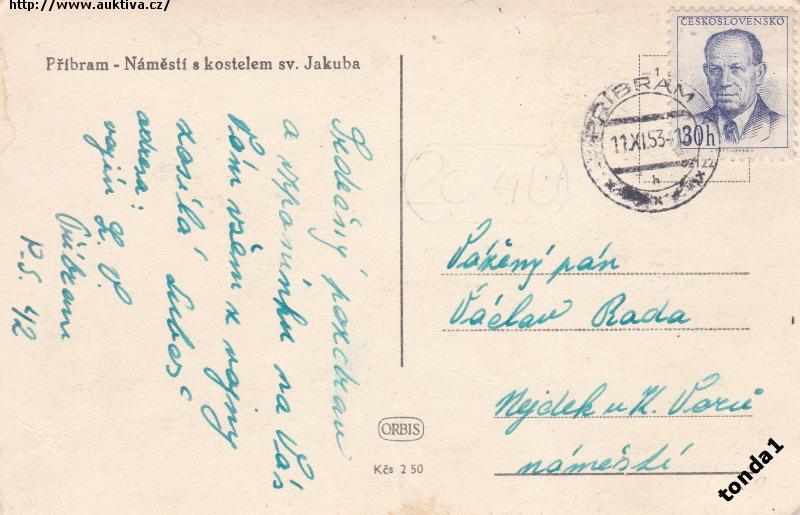 http://www.auktiva.cz/
Příbram - Náměstí s kostelem sv. Jakuba
ČESKOSLOVENSKO
30h
PŘÍBRAM
11.XI.53-
Srdečný pozdrav
a vzpomínku na Vás
Vám všem z vojny
zasílá Luboš
adresa:
vojín L. V.
Příbram
P.S. 42
Vážený pán
Václav Rada
Nejdek u K. Varů
náměstí
ORBIS
Kčs 2 50
tonda1